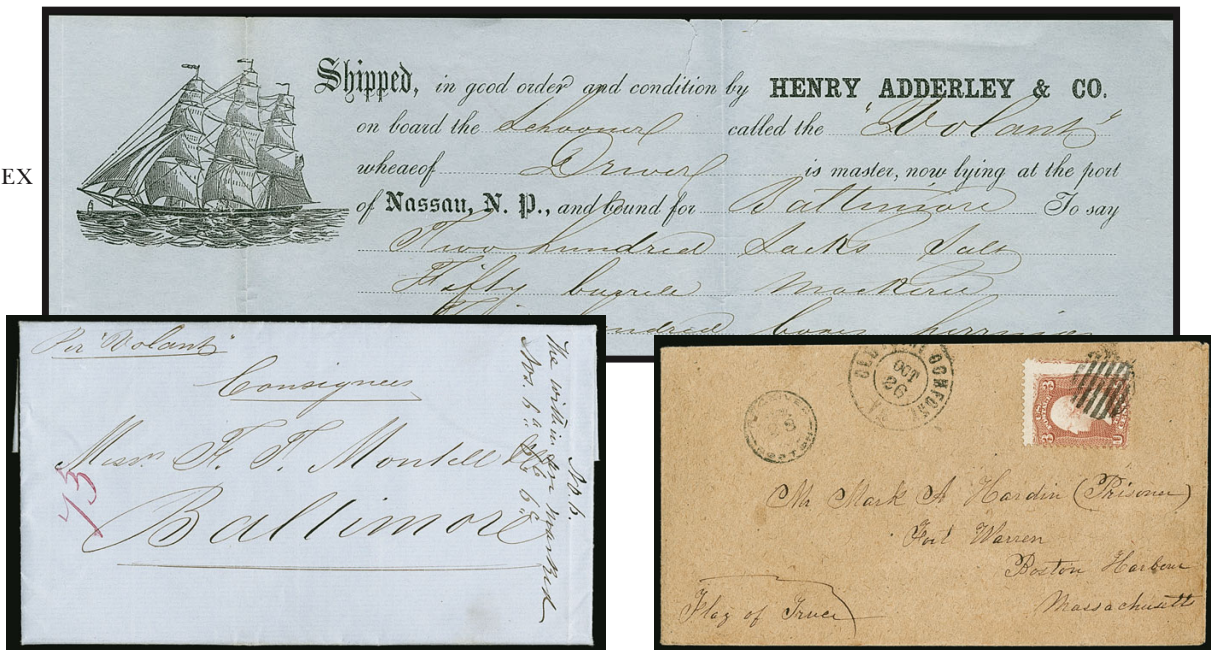 EX
Shipped, in good order and condition by HENRY ADDERLEY & CO.
on board the Schooner called the "Volant"
wheaeof Driver is master, now lying at the port
of Nassau, N. P., and bound for Baltimore To say
Two hundred Sacks Salt
Fifty barrels Mackerel
hundred boxes herrings
Per "Volant"
Consignees
Messrs F. T. Montell &
Baltimore
75
The within
Nos.
marked
OLD POINT COMFORT
OCT
26
VA
28
BOSTON
3 3
U
Mr Mark A Hardin (Prisoner)
Fort Warren
Boston Harbour
Massachusetts
Flag of Truce